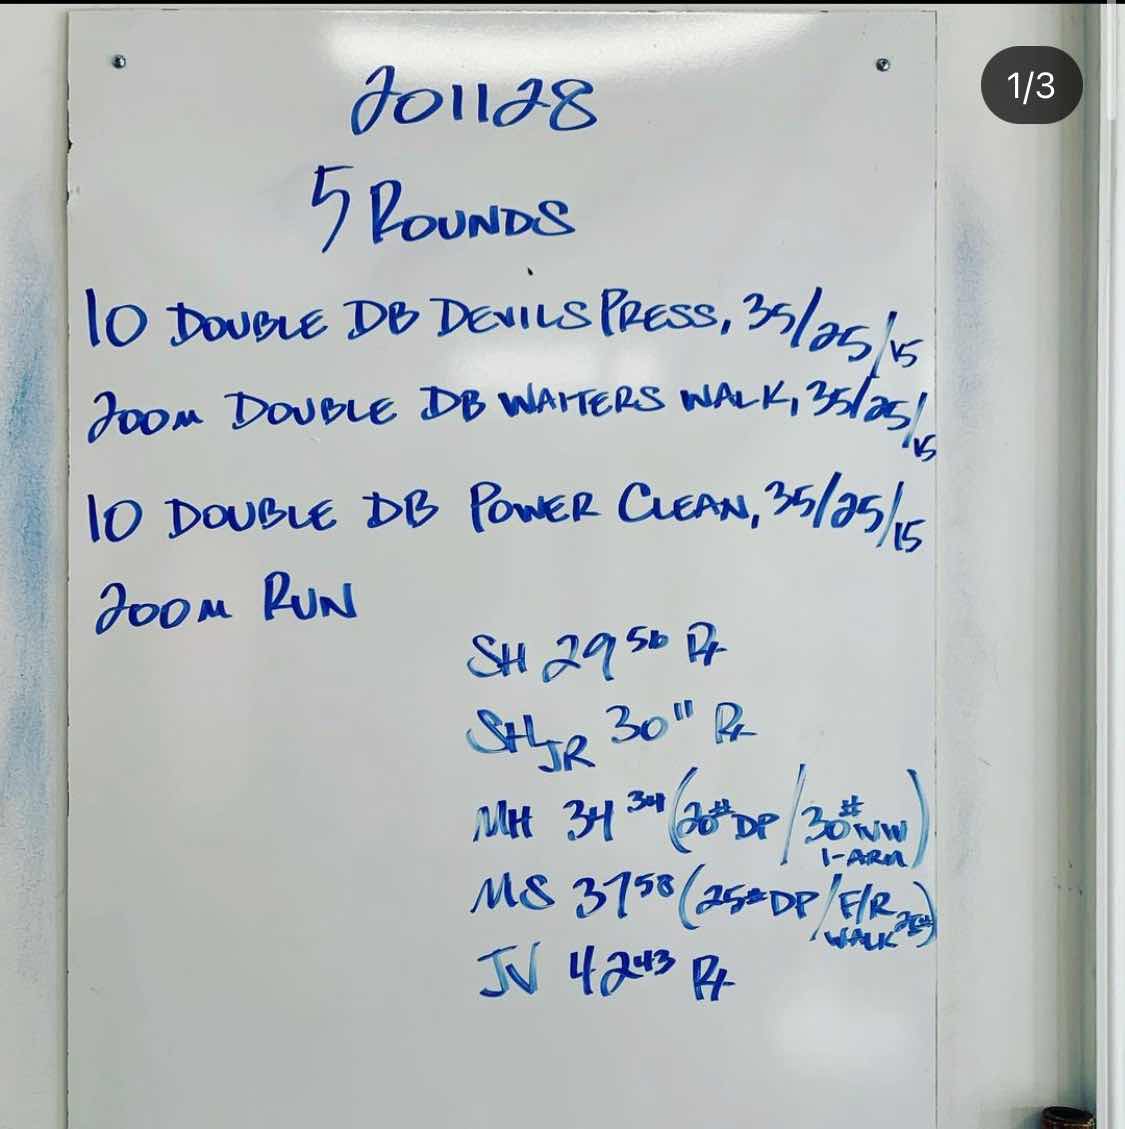 1/3
201128
5 ROUNDS
10 DOUBLE DB DEVILS PRESS, 35/25/15
200M DOUBLE DB WAITERS WALK, 35/25/15
10 DOUBLE DB POWER CLEAN, 35/25/15
200M RUN
SH 29 56 Rx
SH JR 30 11 Rx
MH 34 34 (20# DP / 30# WW
1-ARM)
MS 37 58 (25# DP / F/R
WALK 25#)
JV 42 43 Rx